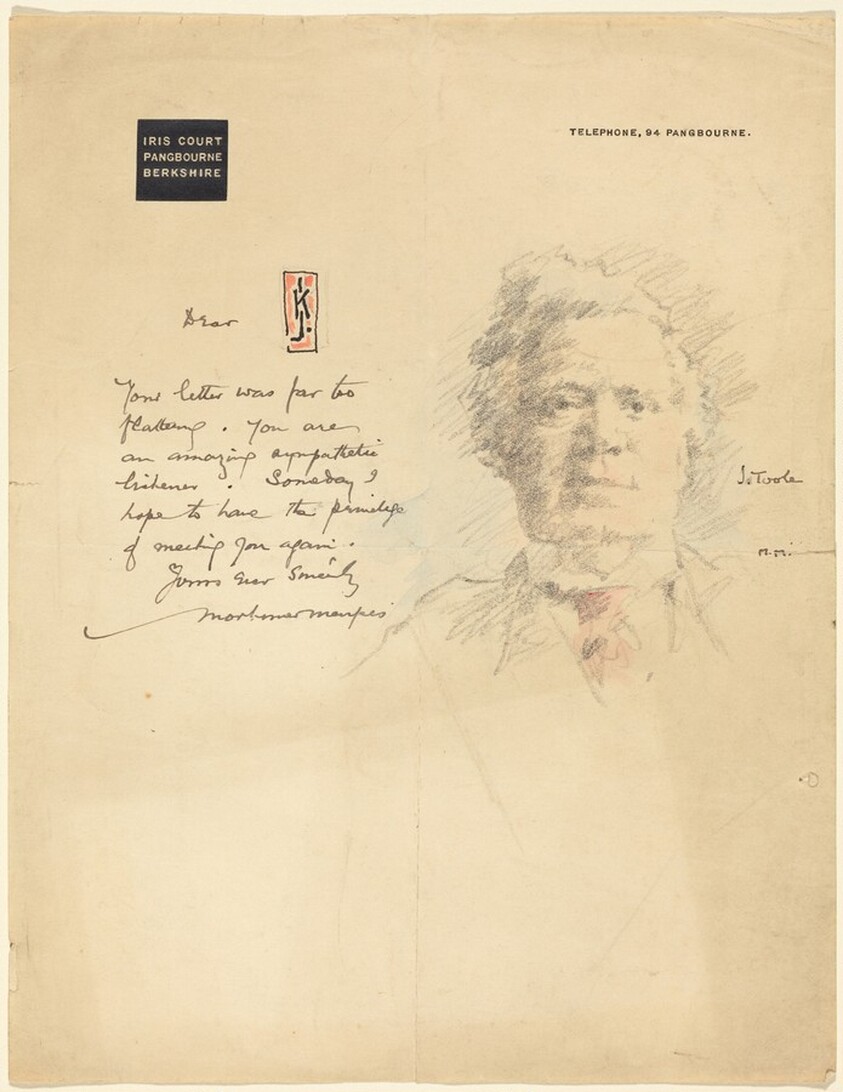 IRIS COURT
PANGBOURNE
BERKSHIRE
TELEPHONE, 94 PANGBOURNE.
Dear
Your letter was far too
flattering. You are
an amazing sympathetic
listener. Someday I
hope to have the privilege
of meeting you again.
Yours Ever Sincerely
Mortimer Menpes
J. Toole
M.M.